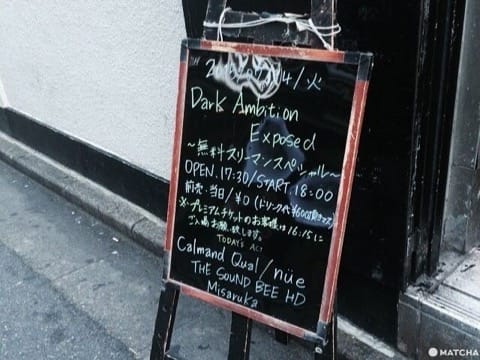 4/火
Dark Ambition
Exposed
～無料スリーマンスペシャル～
OPEN. 17:30/START. 18:00
前売・当日/¥0(ドリンク代¥600頂きます)
※プレミアムチケットのお客様は16:15に
ご入場お願い致します。
TODAY's ACT
Calmand Qual/nüe
THE SOUND BEE HD
Misaruka
MATCHA